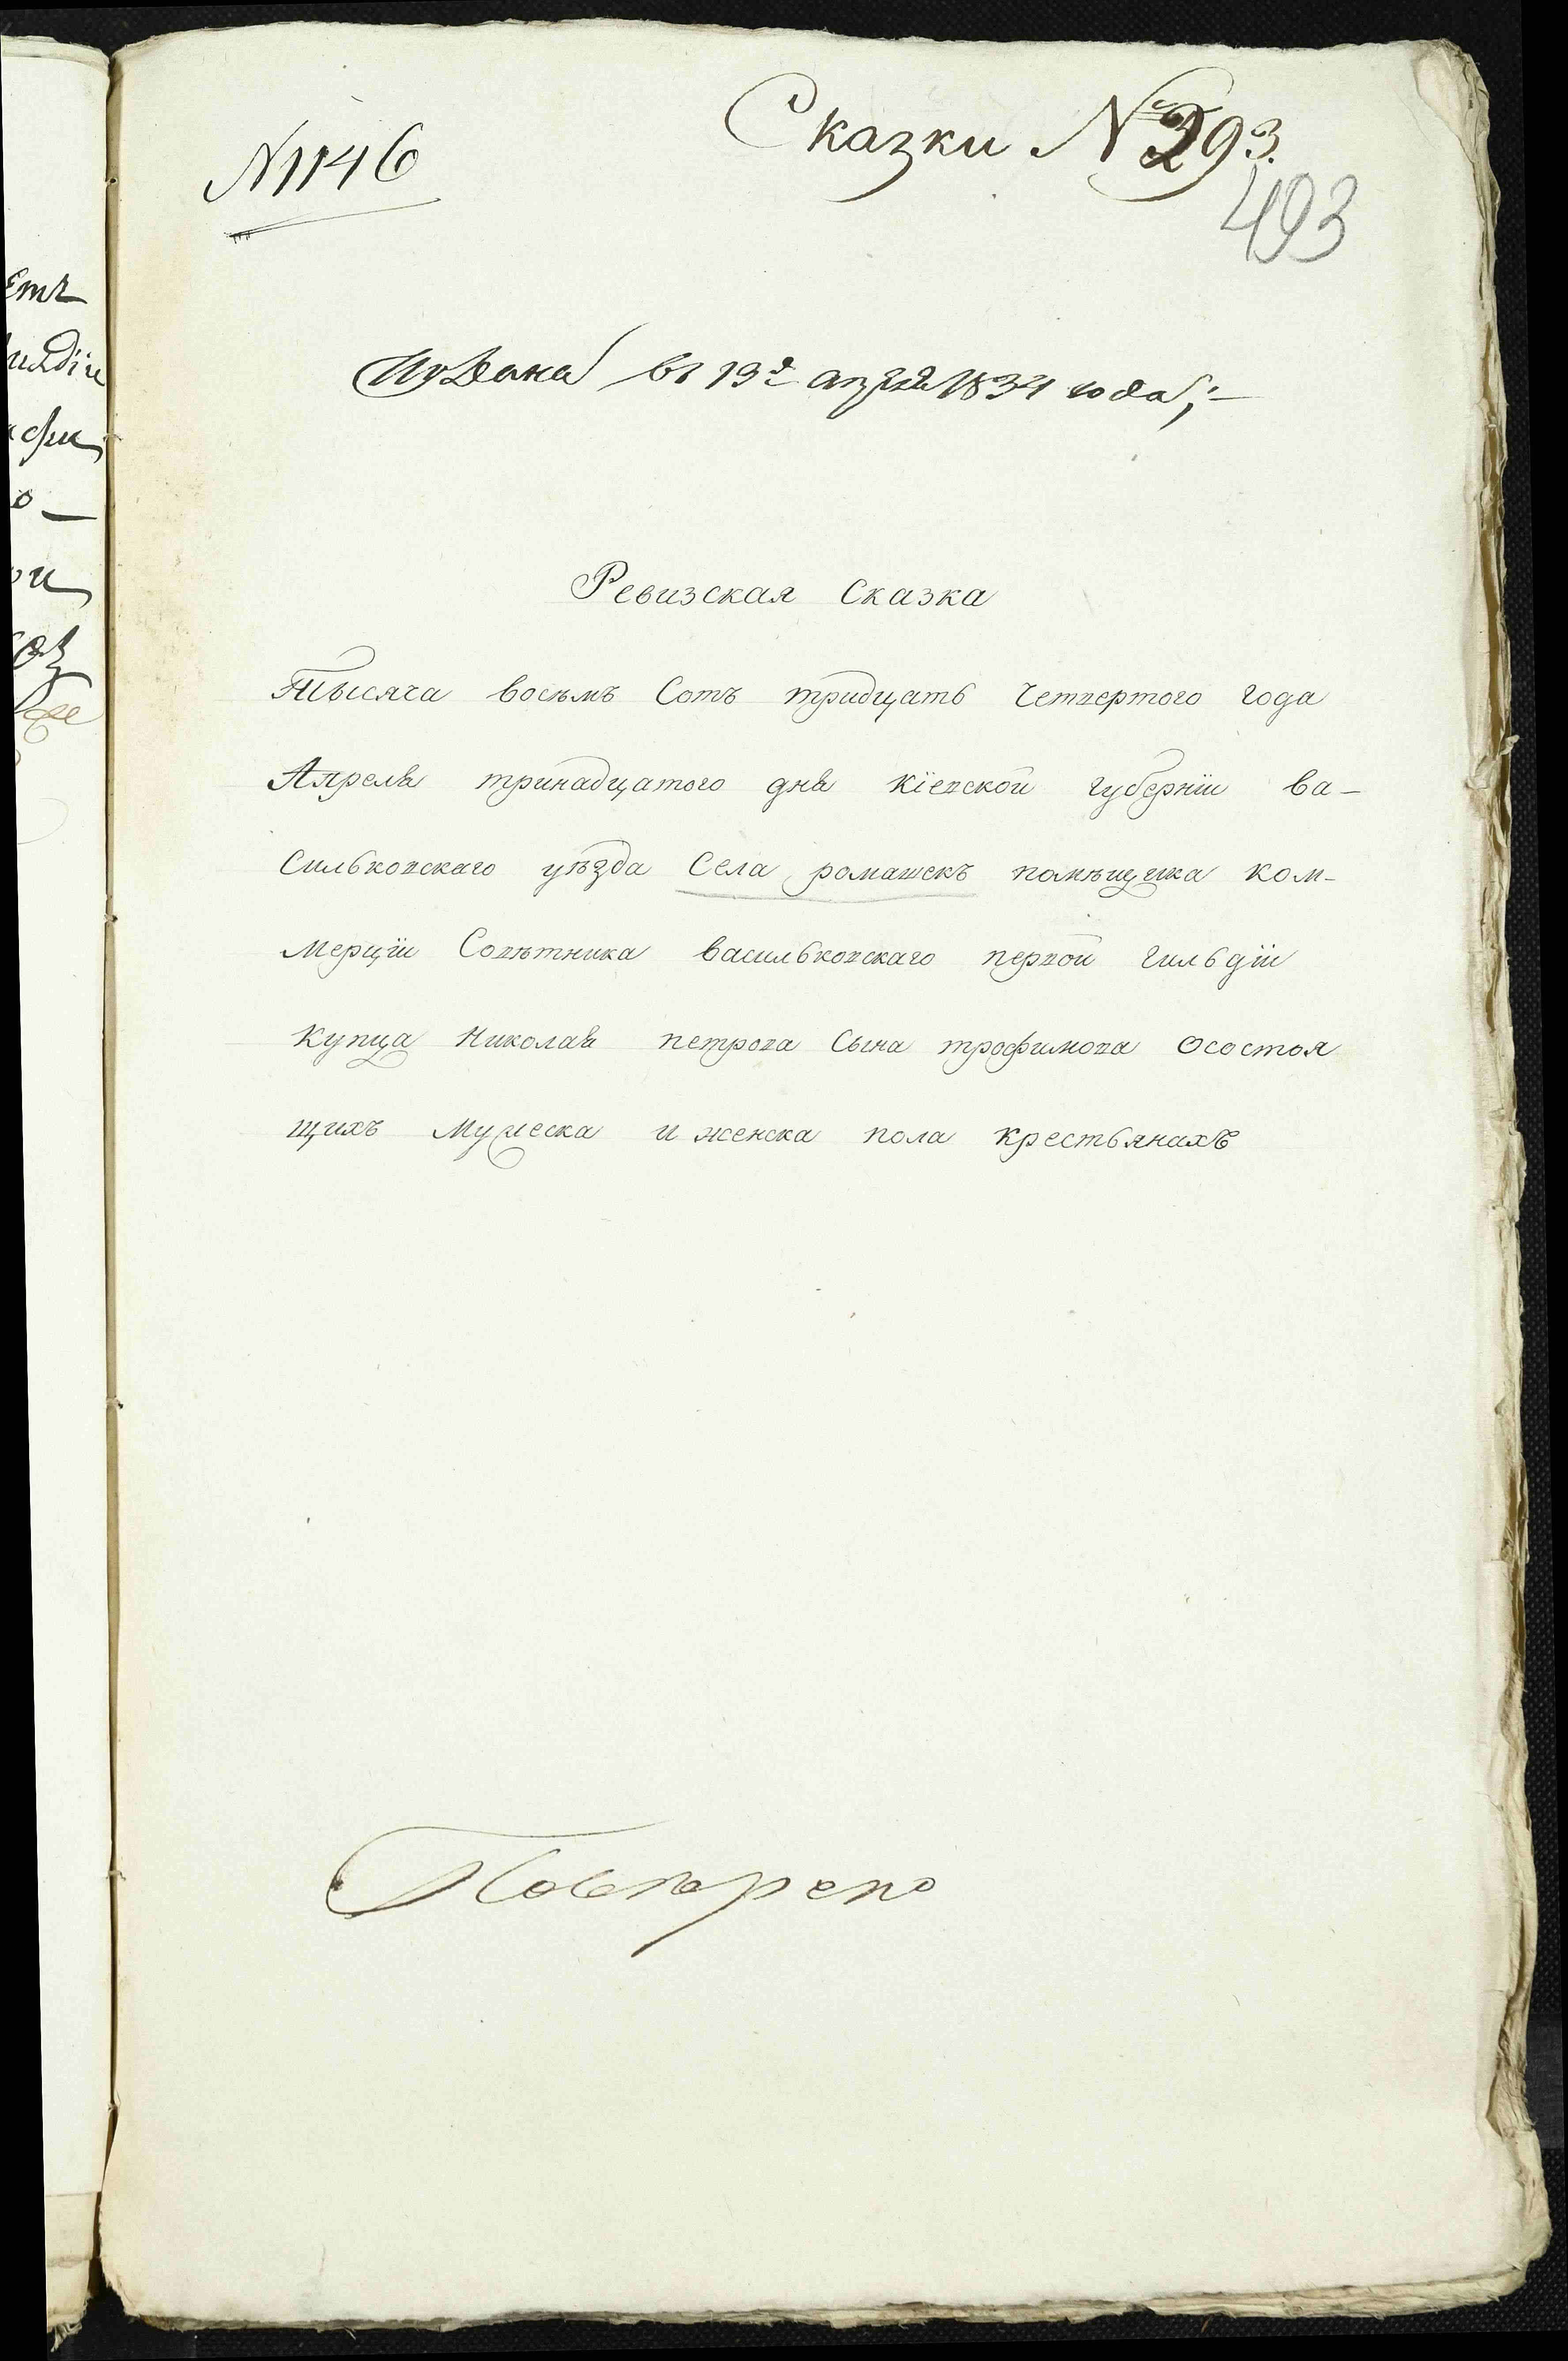 Сказки № 293.
№ 1146
493
Подана въ 13 д. апреля 1834 года;
Ревизская Сказка
Тысяча восьмъ Сотъ тридцать Четвертого года
Апреля тринадцатого дня Кіевской губерніи ва-
Сильковскаго уѣзда Села ромашекъ помѣщика ком-
Мерціи Совѣтника васильковскаго первой Гильдіи
Купца Николая петрова Сына трофимова Осостоя
щихъ Мужеска и женска пола крестьянахъ